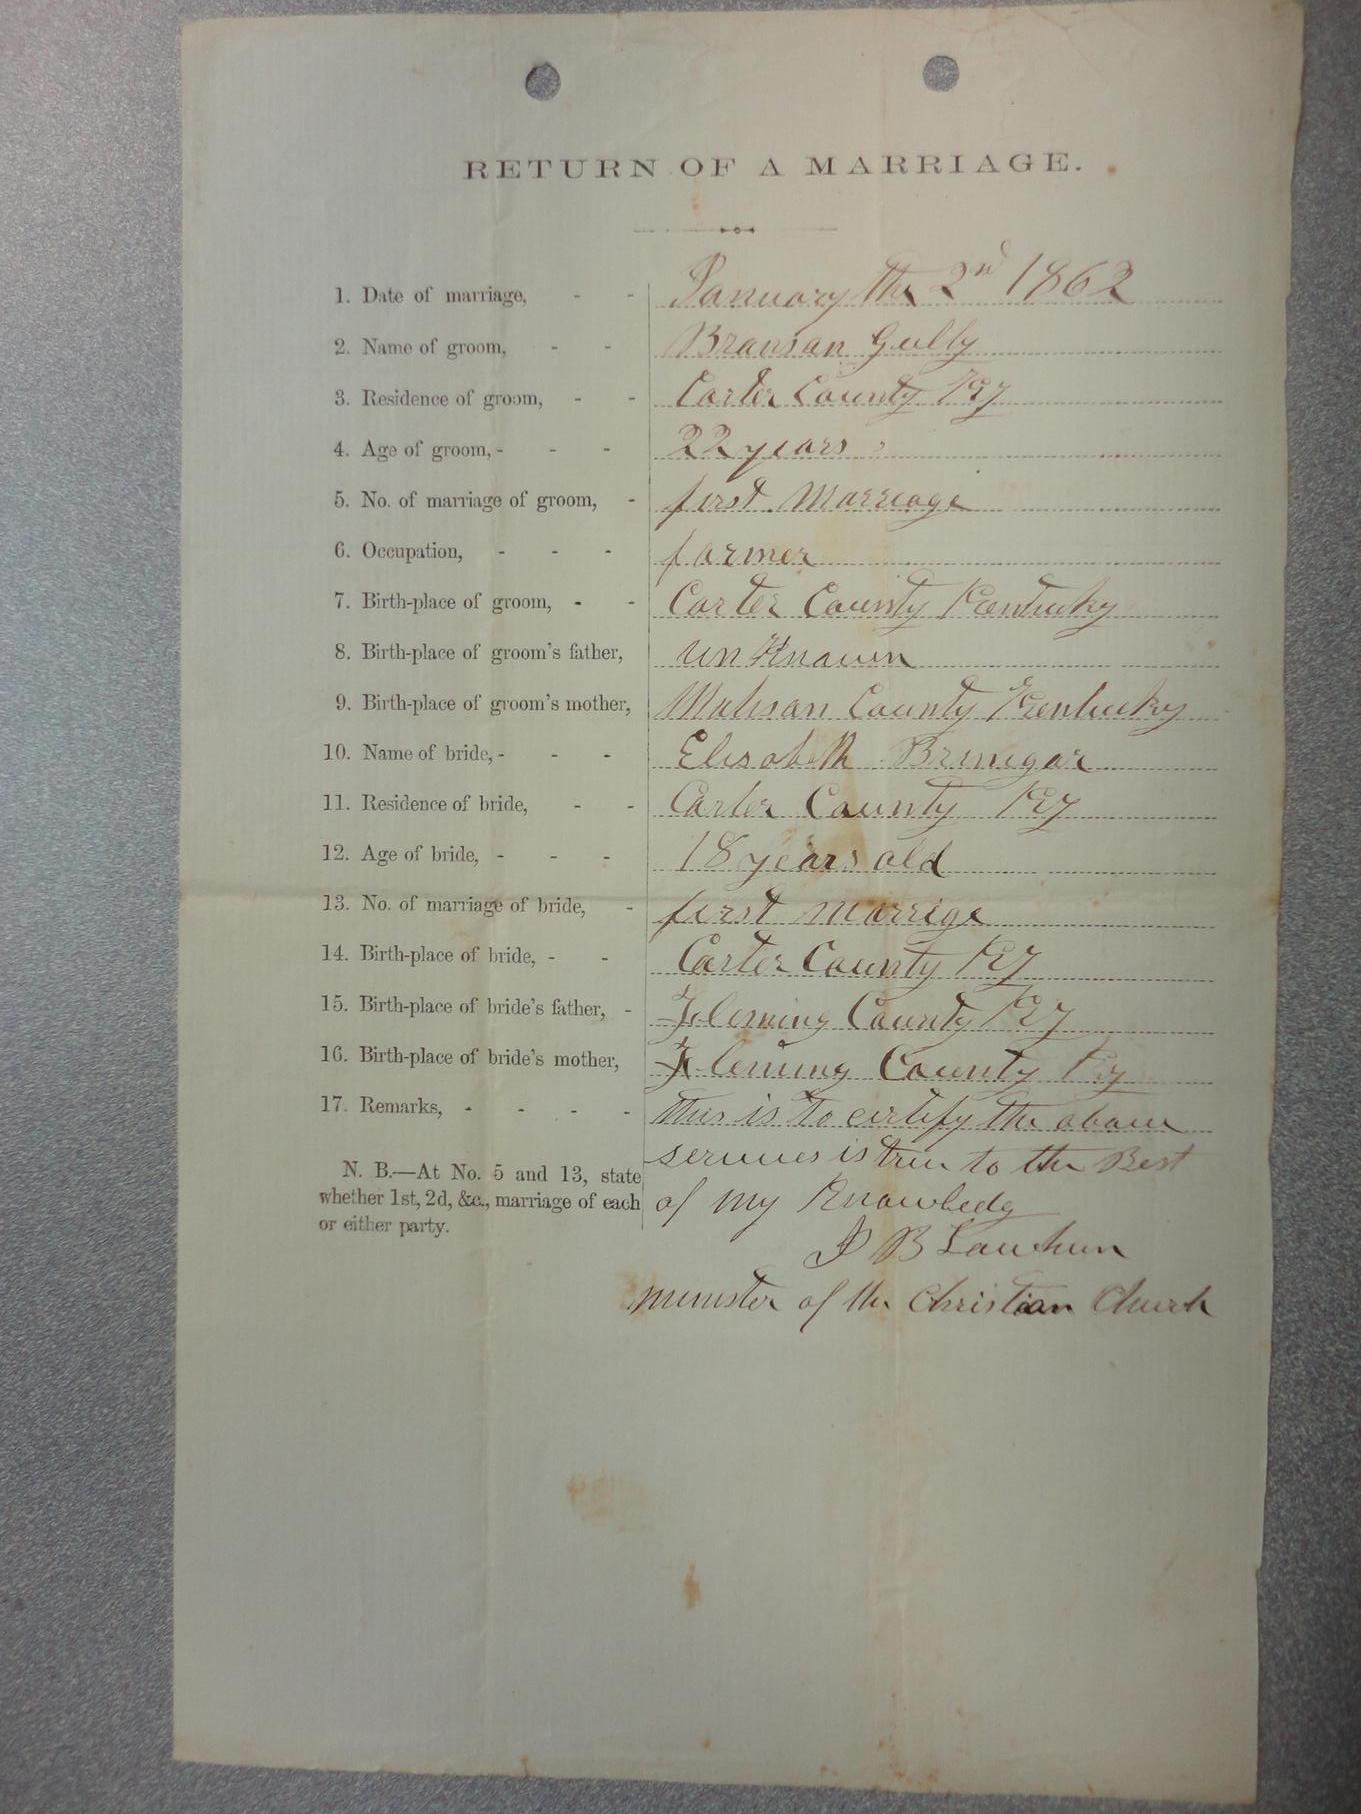 RETURN OF A MARRIAGE.
1. Date of marriage, - - January the 2nd 1862
2. Name of groom, - - Bransan Gully
3. Residence of groom, - - Carter County Ky
4. Age of groom, - - - 22 years
5. No. of marriage of groom, - first Marriage
6. Occupation, - - - farmer
7. Birth-place of groom, - - Carter County Kentucky
8. Birth-place of groom's father, un Knawn
9. Birth-place of groom's mother, County Kentucky
10. Name of bride, - - - Elisabeth Brinegar
11. Residence of bride, - - Carter County Ky
12. Age of bride, - - - 18 years old
13. No. of marriage of bride, - first marrige
14. Birth-place of bride, - - Carter County Ky
15. Birth-place of bride's father, - Fleming County Ky
16. Birth-place of bride's mother, Fleming County Ky
17. Remarks, - - - - this is to certify the above
is true to the Best
of my Knowledg
N. B.—At No. 5 and 13, state
whether 1st, 2d, &c., marriage of each
or either party.
B Lawhun
minister of the Christian Church